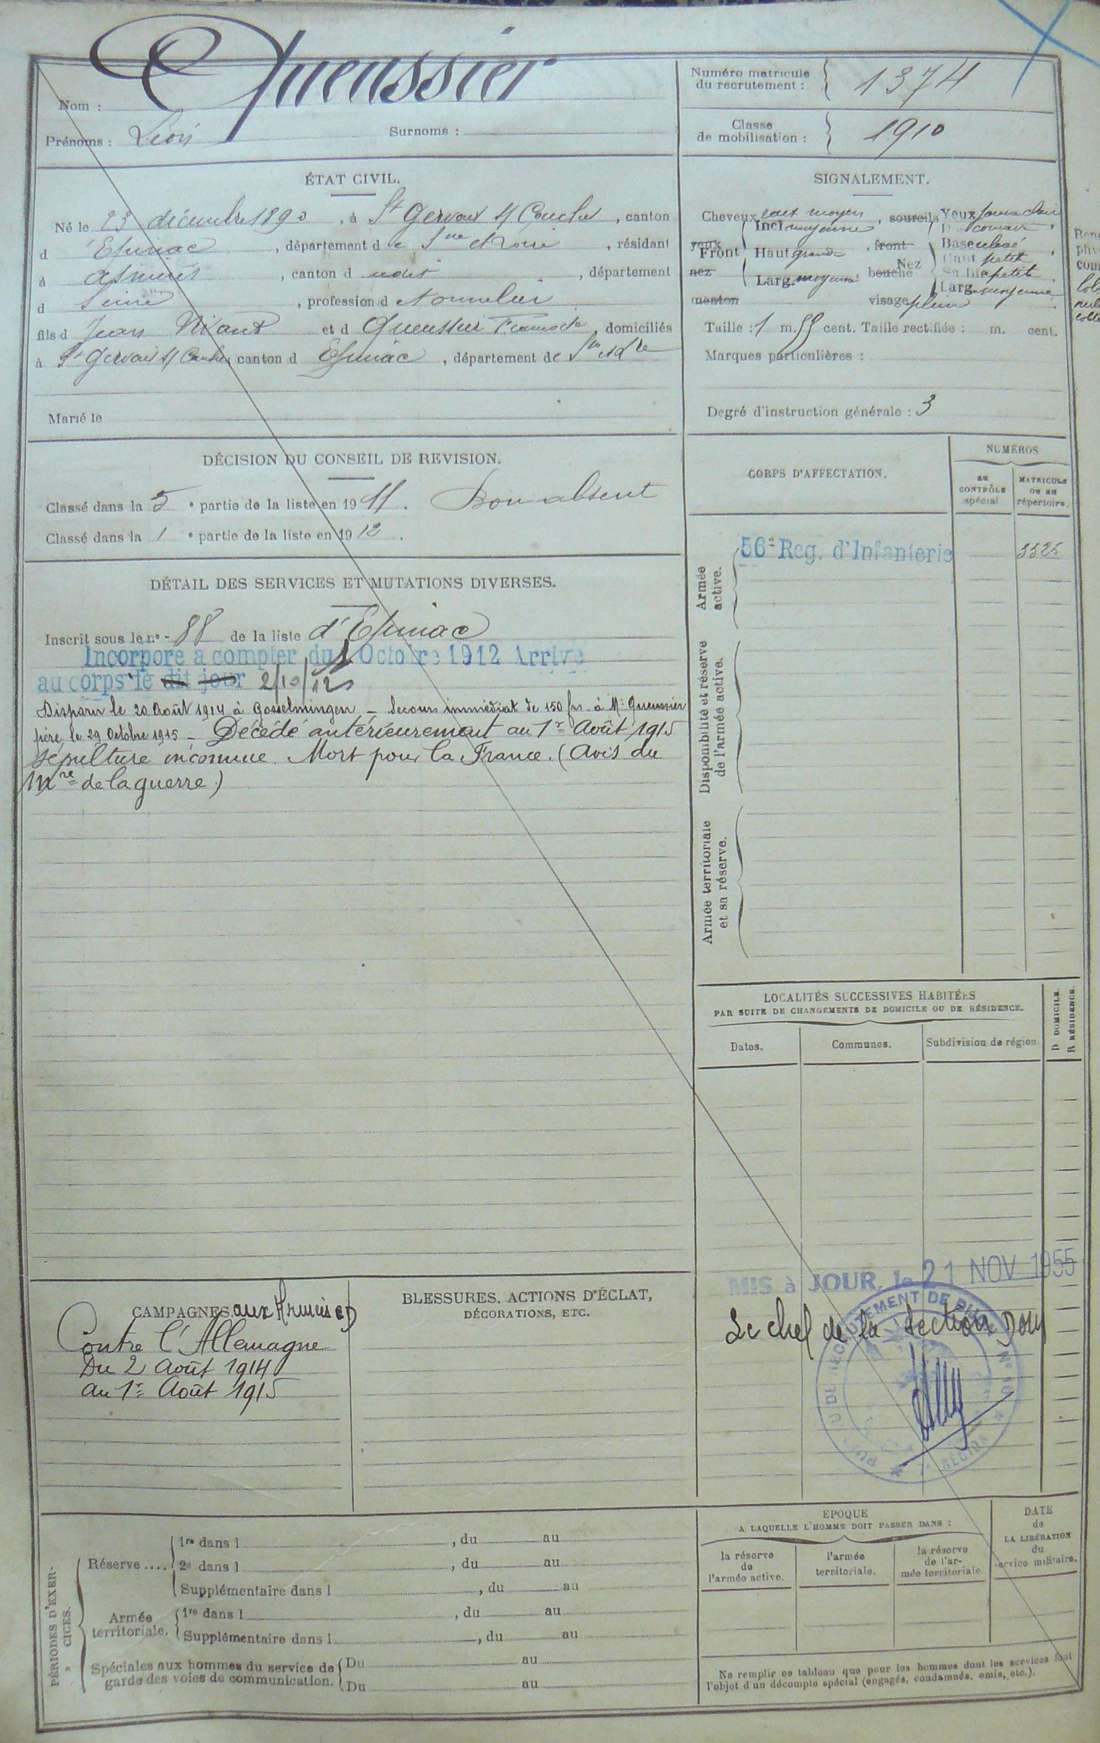 Nom : Queussier
Prénoms : Léon Surnoms :
Numéro matricule du recrutement : 1374
Classe de mobilisation : 1910
ÉTAT CIVIL.
Né le 23 décembre 1890, à St Gervais s/ Couches, canton
d'Epinac, département de Sne et Loire, résidant
à Asnières, canton d, département
d Seine, profession d tonnelier
fils d Jean et d Queussier, domiciliés
à St Gervais s/ Couches canton d Epinac, département de
Marié le
SIGNALEMENT.
Cheveux moyen, sourcils Yeux
Incl. moyenne
yeux Front Haut grande front Nez Base
nez Larg. moyenne bouche Haut petit
Saillie petite
Larg. moyenne
menton visage plein
Taille : 1 m. cent. Taille rectifiée : m. cent.
Marques particulières :
Degré d'instruction générale : 3
DÉCISION DU CONSEIL DE REVISION.
Classé dans la 5e partie de la liste en 1911. Bon absent
Classé dans la 1e partie de la liste en 1912.
DÉTAIL DES SERVICES ET MUTATIONS DIVERSES.
Inscrit sous le n° 88 de la liste d'Epinac
Incorporé à compter du 1 Octobre 1912 Arrivé
au corps le dit jour 2/10/12
Disparu le 20 Août 1914 à Gosselmingen - Secours immédiat de 150 frs à Mr Queussier
père le 29 Octobre 1915 - Décédé antérieurement au 1er Août 1915
Sépulture inconnue. Mort pour la France. (Avis du
Mre de la guerre)
CORPS D'AFFECTATION.
NUMÉROS
AU CONTRÔLE spécial.
MATRICULE OU AU répertoire.
Armée active.
56e Reg. d'Infanterie
Disponibilité et réserve de l'armée active.
Armée territoriale et sa réserve.
LOCALITÉS SUCCESSIVES HABITÉES
PAR SUITE DE CHANGEMENTS DE DOMICILE OU DE RÉSIDENCE.
Dates. Communes. Subdivision de région
D DOMICILE.
R RÉSIDENCE.
MIS à JOUR, le 21 NOV 1955
Le chef de la section
CAMPAGNES aux Armées
Contre l'Allemagne
Du 2 Août 1914
au 1er Août 1915
BLESSURES, ACTIONS D'ÉCLAT,
DÉCORATIONS, ETC.
PÉRIODES D'EXERCICES.
Réserve .... 1re dans l , du au
2e dans l , du au
Supplémentaire dans l , du au
Armée territoriale. 1re dans l , du au
Supplémentaire dans l , du au
Spéciales aux hommes du service de garde des voies de communication. Du au
Du au
ÉPOQUE
A LAQUELLE L'HOMME DOIT PASSER DANS :
la réserve de l'armée active.
l'armée territoriale.
la réserve de l'armée territoriale
DATE de LA LIBÉRATION du service militaire.
Ne remplir ce tableau que pour les hommes dont les services font
l'objet d'un décompte spécial (engagés, condamnés, omis, etc.).